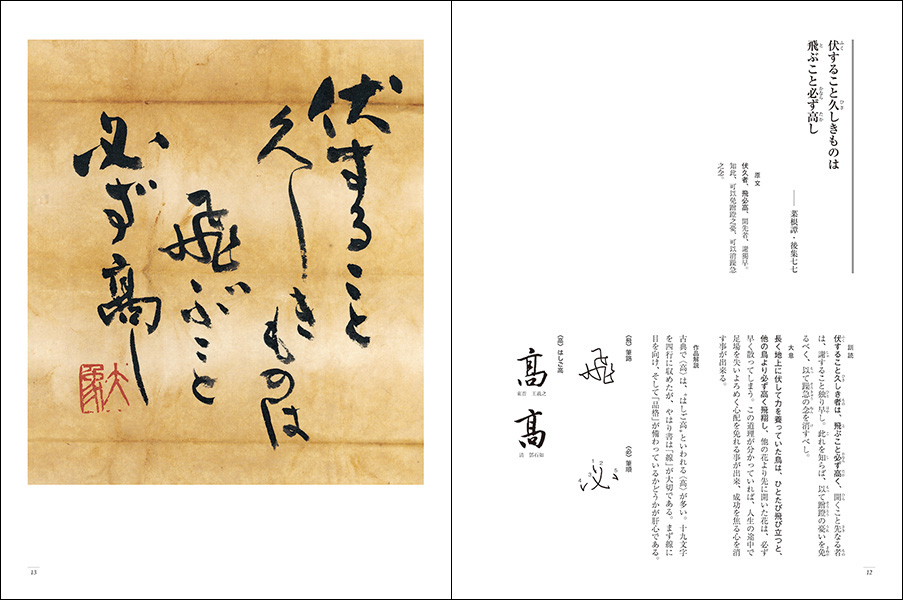 伏すること久しきものは
飛ぶこと必ず高し
――菜根譚・後集七七
原文
伏久者、飛必高、開先者、謝獨早。
知此、可以免蹭蹬之憂、可以消躁急
之念。
訓読
伏すること久しき者は、飛ぶこと必ず高く、開くこと先なる者
は、謝すること独り早し。此れを知らば、以て蹭蹬の憂いを免
るべく、以て躁急の念を消すべし。
大意
長く地上に伏して力を養っていた鳥は、ひとたび飛び立つと、
他の鳥より必ず高く飛翔し、他の花より先に開いた花は、必ず
早く散ってしまう。この道理が分かっていれば、人生の途中で
足場を失いよろめく心配を免れる事が出来、成功を焦る心を消
す事が出来る。
作品解説
古典で〈高〉は、“はしご高”といわれる〈髙〉が多い。十九文字
を四行に収めたが、やはり書は「線」が大切である。まず線に
目を向け、そして「品格」が備わっているかどうかが肝心である。
(飛) 筆路
飛
(必) 筆順
必
1 2 3 4 5
(高) はしご高
髙
東晋 王羲之
髙
清 鄧石如
12
伏すること
久しきものは
飛ぶこと
必ず髙し
13